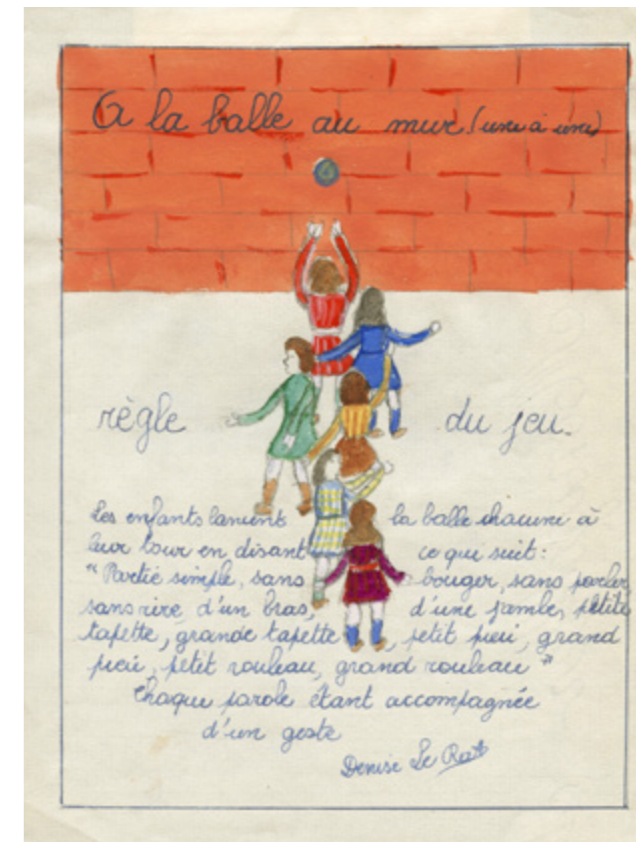 A la balle au mur (une à une)
règle du jeu.
Les enfants lancent la balle chacune à
leur tour en disant ce que suit :
"Partie simple, sans bouger, sans parler,
sans rire, d'un bras, d'une jambe, petite
tapette, grande tapette, petit pieu, grand
pieu, petit rouleau, grand rouleau"
Chaque parole étant accompagnée
d'un geste
Denise Le Rat